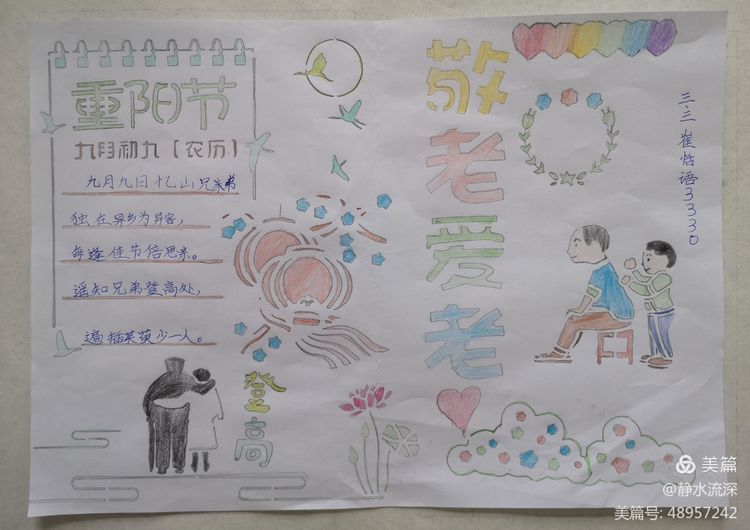 重阳节
九月初九（农历）
九月九日忆山兄亲弟
独在异乡为异客，
每逢佳节倍思亲。
遥知兄弟登高处，
遍插茱萸少一人。
登高
敬老爱老
三.三崔恬语3330
美篇
@静水流深
美篇号: 48957242